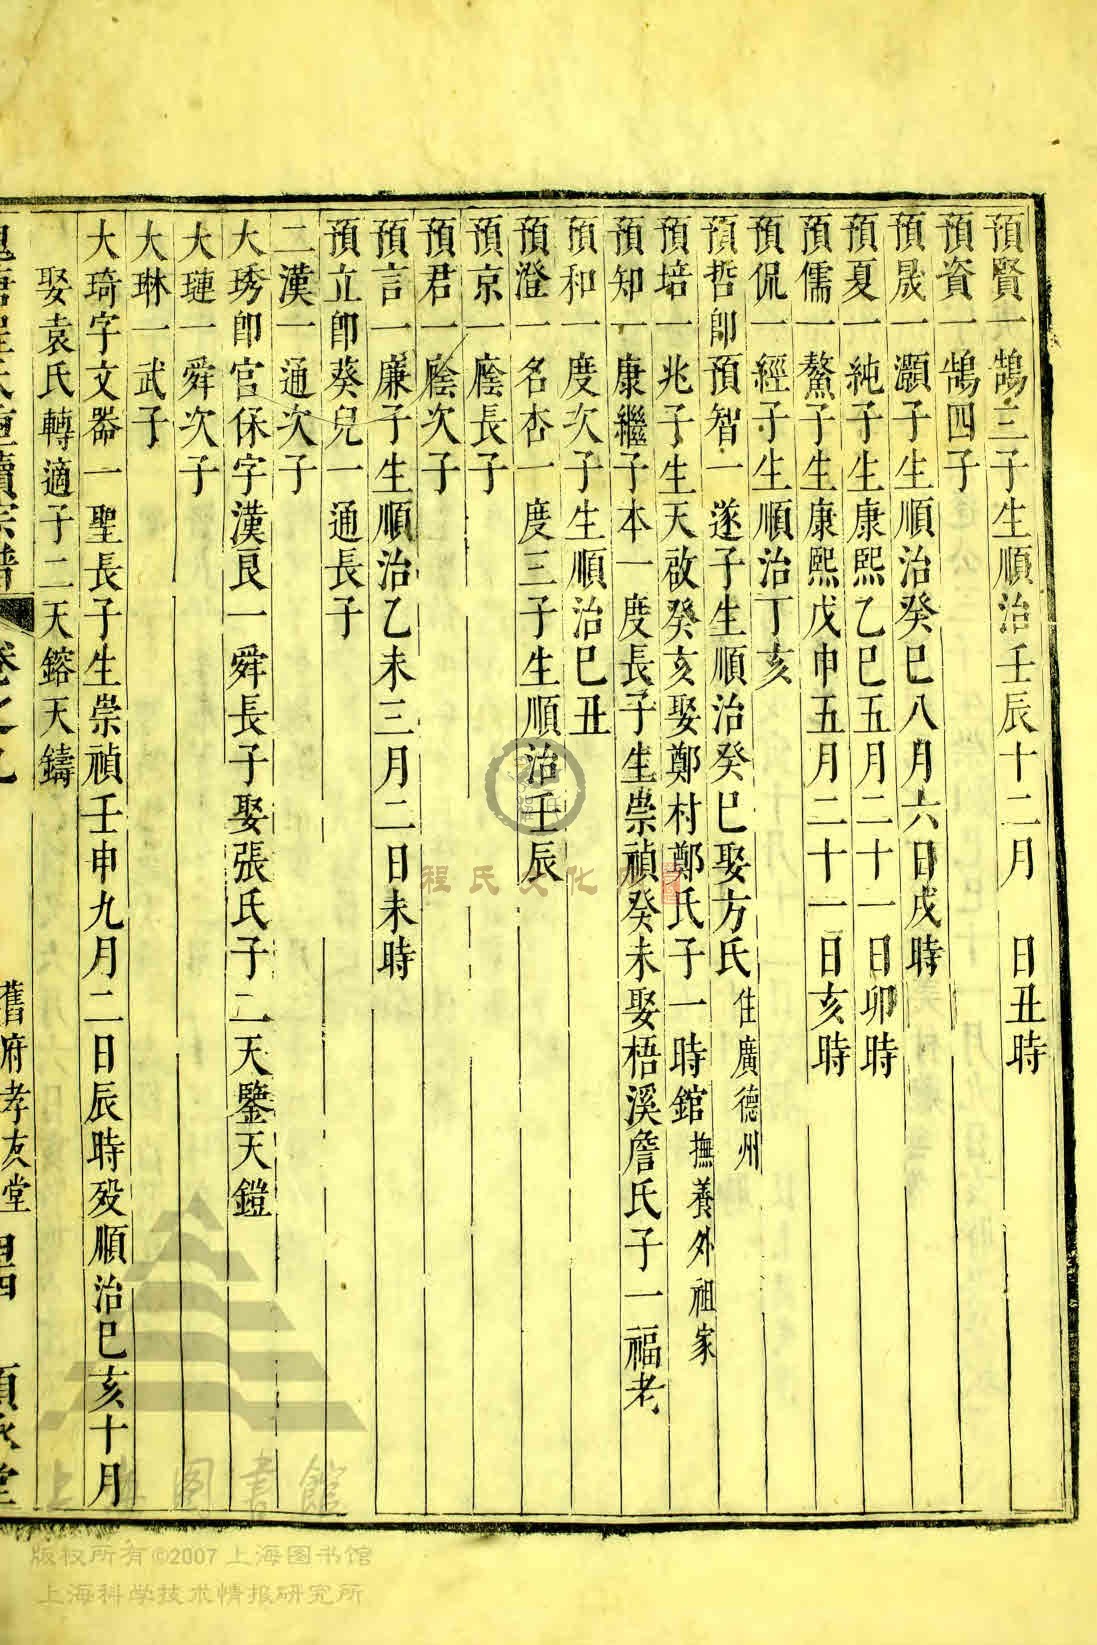 預賢一鵠三子生順治壬辰十二月　日丑時
預資一鵠四子
預晟一灝子生順治癸巳八月六日戌時
預夏一純子生康熙乙巳五月二十一日卯時
預儒一鰲子生康熙戊申五月二十一日亥時
預侃一經子生順治丁亥
預哲卽預智一遂子生順治癸巳娶方氏住廣德州
預培一兆子生天啟癸亥娶鄭村鄭氏子一時錧撫養外祖家
預知一康繼子本一度長子生崇禎癸未娶梧溪詹氏子一福老
預和一度次子生順治己丑
預澄一名杏一度三子生順治壬辰
預京一廕長子
預君一廕次子
預言一廉子生順治乙未三月二日未時
預立卽葵兒一通長子
二漢一通次子
大琇卽官保字漢良一舜長子娶張氏子二天鑒天鎧
大璉一舜次子
大琳一武子
大琦字文器一聖長子生崇禎壬申九月二日辰時歿順治己亥十月
娶袁氏轉適子二天鎔天鑄
程氏 續宗譜 卷之九 舊府孝友堂 順承堂
程氏文化
上海图書館
版权所有©2007上海图书馆
上海科学技术情报研究所